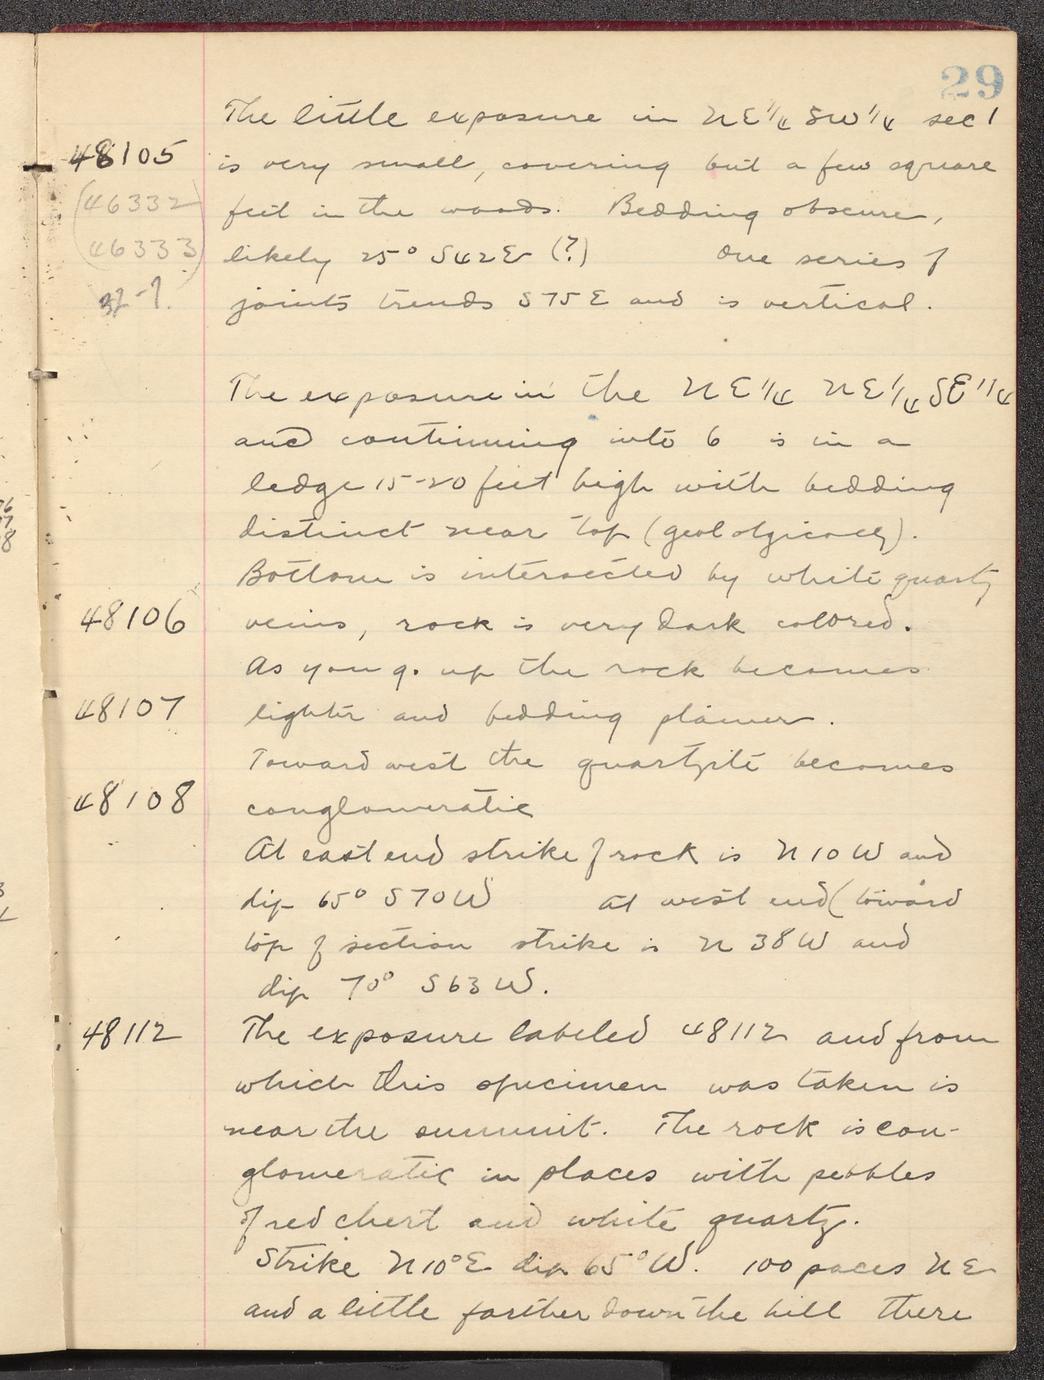 29
The little exposure in NE 1/4 SW 1/4 sec 1
48105 is very small, covering but a few square
(46332 feet in the woods. Bedding obscure,
46333) likely 25° S42E (?) One series of
joints trends S75E and is vertical.
The exposure in the NE 1/4 NE 1/4 SE 1/4
and continuing into 6 is in a
ledge 15-20 feet high with bedding
distinct near top (geololgicaly).
Bottom is intersected by white quartz
48106 veins, rock is very dark colored.
As you go up the rock becomes
48107 lighter and bedding plainer.
Toward west the quartzite becomes
48108 conglomeratic
At east end strike of rock is N10W and
dip 65° S70W At west end (toward
top of section strike is N38W and
dip 70° S63W.
48112 The exposure labeled 48112 and from
which this specimen was taken is
near the summit. The rock is con-
glomeratic in places with pebbles
of red chert and white quartz.
Strike N10°E dip 65°W. 100 paces NE
and a little farther down the hill there